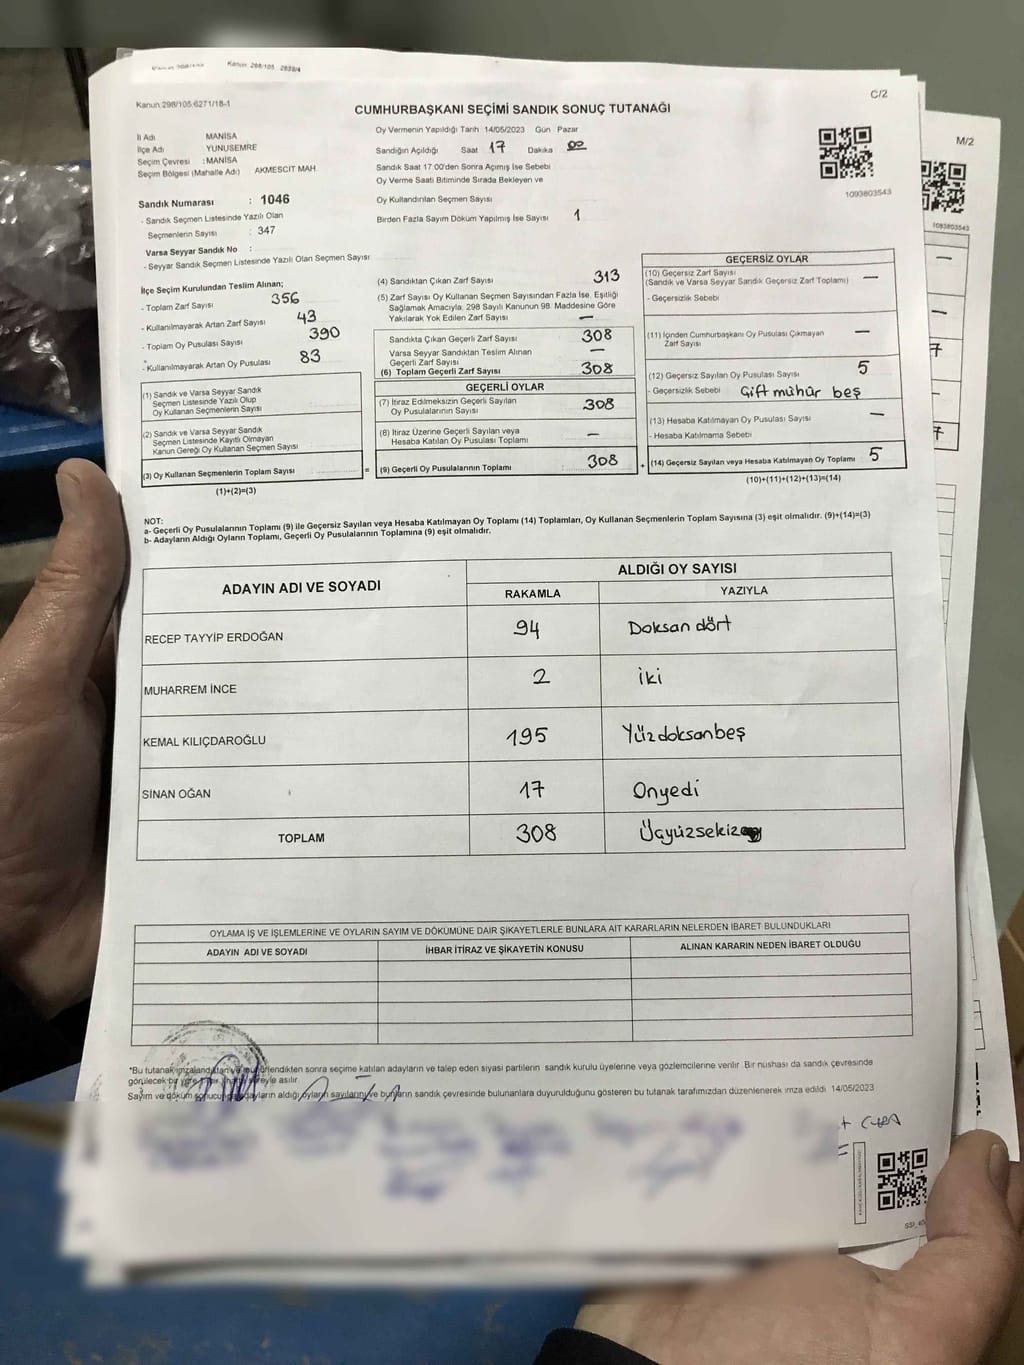 Kanun 298/105 2839/4
Kanun:298/105:6271/18-1
C/2
M/2
CUMHURBAŞKANI SEÇİMİ SANDIK SONUÇ TUTANAĞI
İl Adı MANİSA
İlçe Adı YUNUSEMRE
Seçim Çevresi : MANİSA
Seçim Bölgesi (Mahalle Adı) AKMESCİT MAH
Sandık Numarası : 1046
- Sandık Seçmen Listesinde Yazılı Olan
Seçmenlerin Sayısı : 347
Varsa Seyyar Sandık No :
- Seyyar Sandık Seçmen Listesinde Yazılı Olan Seçmen Sayısı
Oy Vermenin Yapıldığı Tarih 14/05/2023 Gün Pazar
Sandığın Açıldığı Saat 17 Dakika 00
Sandık Saat 17.00'den Sonra Açımış İse Sebebi
Oy Verme Saati Bitiminde Sırada Bekleyen ve
Oy Kullandırılan Seçmen Sayısı
Birden Fazla Sayım Döküm Yapılmış İse Sayısı 1
1093803543
1093803543
İlçe Seçim Kurulundan Teslim Alınan;
- Toplam Zarf Sayısı 356
- Kullanılmayarak Artan Zarf Sayısı 43
- Toplam Oy Pusulası Sayısı 390
- Kullanılmayarak Artan Oy Pusulası 83
(1) Sandık ve Varsa Seyyar Sandık
Seçmen Listesinde Yazılı Olup
Oy Kullanan Seçmenlerin Sayısı
(2) Sandık ve Varsa Seyyar Sandık
Seçmen Listesinde Kayıtlı Olmayan
Kanun Gereği Oy Kullanan Seçmen Sayısı
(3) Oy Kullanan Seçmenlerin Toplam Sayısı =
(1)+(2)=(3)
(4) Sandıktan Çıkan Zarf Sayısı 313
(5) Zarf Sayısı Oy Kullanan Seçmen Sayısından Fazla İse, Eşitliği
Sağlamak Amacıyla, 298 Sayılı Kanunun 98. Maddesine Göre
Yakılarak Yok Edilen Zarf Sayısı —
Sandıkta Çıkan Geçerli Zarf Sayısı 308
Varsa Seyyar Sandıktan Teslim Alınan
Geçerli Zarf Sayısı —
(6) Toplam Geçerli Zarf Sayısı 308
GEÇERLİ OYLAR
(7) İtiraz Edilmeksizin Geçerli Sayılan
Oy Pusulalarının Sayısı 308
(8) İtiraz Üzerine Geçerli Sayılan veya
Hesaba Katılan Oy Pusulası Toplamı —
(9) Geçerli Oy Pusulalarının Toplamı 308 +
GEÇERSİZ OYLAR
(10) Geçersiz Zarf Sayısı
(Sandık ve Varsa Seyyar Sandık Geçersiz Zarf Toplamı) —
- Geçersizlik Sebebi
(11) İçinden Cumhurbaşkanı Oy Pusulası Çıkmayan
Zarf Sayısı —
(12) Geçersiz Sayılan Oy Pusulası Sayısı 5
- Geçersizlik Sebebi Çift mühür beş
(13) Hesaba Katılmayan Oy Pusulası Sayısı —
- Hesaba Katılmama Sebebi
(14) Geçersiz Sayılan veya Hesaba Katılmayan Oy Toplamı 5
(10)+(11)+(12)+(13)=(14)
NOT:
a- Geçerli Oy Pusulalarının Toplamı (9) ile Geçersiz Sayılan veya Hesaba Katılmayan Oy Toplamı (14) Toplamları, Oy Kullanan Seçmenlerin Toplam Sayısına (3) eşit olmalıdır. (9)+(14)=(3)
b- Adayların Aldığı Oyların Toplamı, Geçerli Oy Pusulalarının Toplamına (9) eşit olmalıdır.
ADAYIN ADI VE SOYADI ALDIĞI OY SAYISI
RAKAMLA YAZIYLA
RECEP TAYYİP ERDOĞAN 94 Doksan dört
MUHARREM İNCE 2 iki
KEMAL KILIÇDAROĞLU 195 Yüzdoksanbeş
SİNAN OĞAN 17 Onyedi
TOPLAM 308 Üçyüzsekiz
OYLAMA İŞ VE İŞLEMLERİNE VE OYLARIN SAYIM VE DÖKÜMÜNE DAİR ŞİKAYETLERLE BUNLARA AİT KARARLARIN NELERDEN İBARET BULUNDUKLARI
ADAYIN ADI VE SOYADI İHBAR İTİRAZ VE ŞİKAYETİN KONUSU ALINAN KARARIN NEDEN İBARET OLDUĞU
*Bu tutanak imzalandıktan ve mühürlendikten sonra seçime katılan adayların ve talep eden siyasi partilerin sandık kurulu üyelerine veya gözlemcilerine verilir. Bir nüshası da sandık çevresinde
görülecek bir yere süreyle asılır.
Sayım ve döküm sonucu adayların aldığı oyların sayılarını ve bunların sandık çevresinde bulunanlara duyurulduğunu gösteren bu tutanak tarafımızdan düzenlenerek imza edildi 14/05/2023